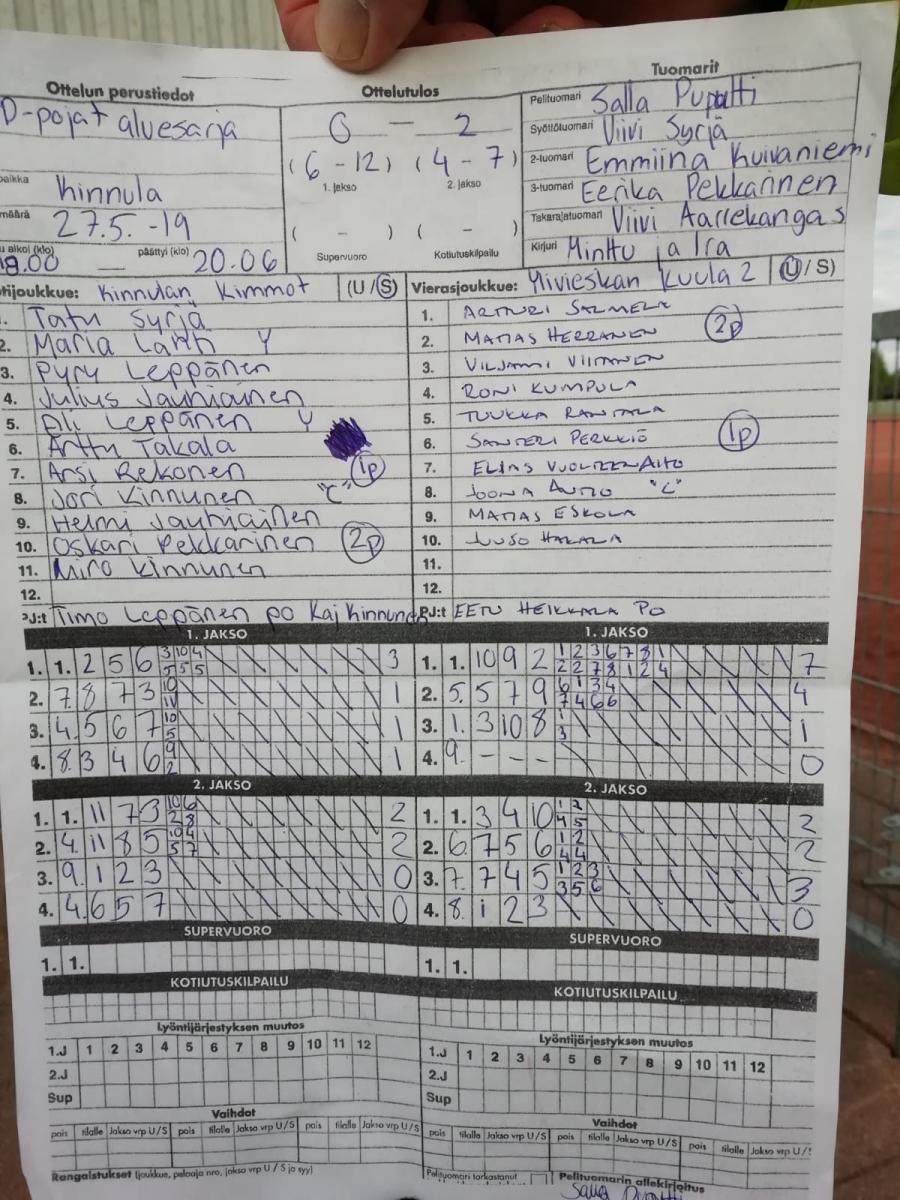 Ottelun perustiedot
D-pojat aluesarja
paikka Kinnula
määrä 27.5.-19
alkoi (klo) 18.00 — päättyi (klo) 20.06
Ottelutulos
0 - 2
(6 - 12) (4 - 7)
1. jakso 2. jakso
( - ) ( - )
Supervuoro Kotiutuskilpailu
Tuomarit
Pelituomari Salla Pupatti
Syöttötuomari Viivi Syrjä
2-tuomari Emmiina Kuivaniemi
3-tuomari Eerika Pekkarinen
Takarajatuomari Viivi Aarrekangas
Kirjuri Minttu ja Ira
tijoukkue: Kinnulan Kimmot (U/S)
1. Tatu Syrjä
2. Maria Lahti Y
3. Pyry Leppänen
4. Julius Jauhiainen
5. Oli Leppänen Y
6. Arttu Takala
7. Arsi Rekonen 1p
8. Jori Kinnunen "C"
9. Helmi Jauhiainen
10. Oskari Pekkarinen 2p
11. Miro Kinnunen
12.
PJ:t Timo Leppänen po Kaj Kinnunen
Vierasjoukkue: Ylivieskan Kuula 2 (U/S)
1. ARTTURI SALMELA
2. MATIAS HERRANEN 2p
3. VILJAMI VIITANEN
4. RONI KUMPULA
5. TUUKKA RANTALA
6. SANTERI PERKKIÖ 1p
7. ELIAS VUOLTEENAHO
8. JOONA AUTIO "C"
9. MATIAS ESKOLA
10. JUUSO HAKALA
11.
12.
PJ:t EETU HEIKKALA PO
1. JAKSO
1. 1. 2 5 6 3 10 4 3
5 5 5
2. 7. 8 7 3 10 1
11
3. 4. 5 6 7 10 1
5
4. 8. 3 4 6 9 1
2
2. JAKSO
1. 1. 11 7 3 10 6 2
2 8
2. 4. 11 8 5 10 4 2
5 7
3. 9. 1 2 3 0
4. 4. 6 5 7 0
SUPERVUORO
1. 1.
KOTIUTUSKILPAILU
Lyöntijärjestyksen muutos
1.J 1 2 3 4 5 6 7 8 9 10 11 12
2.J
Sup
Vaihdot
pois tilalle Jakso vrp U/S pois tilalle Jakso vrp U/S pois tilalle Jakso vrp U/S
Rangaistukset (joukkue, pelaaja nro, jakso vrp U / S ja syy)
1. JAKSO
1. 1. 10 9 2 1 2 3 6 7 8 1 7
2 2 7 8 1 2 4
2. 5. 5 7 9 6 1 3 4 4
7 4 6 6
3. 1. 3 10 8 1 1
3
4. 9. - - - 0
2. JAKSO
1. 1. 3 4 10 1 2 2
4 5
2. 6. 7 5 6 1 2 2
4 4
3. 7. 7 4 5 1 2 3 3
3 5 6
4. 8. 1 2 3 0
SUPERVUORO
1. 1.
KOTIUTUSKILPAILU
Lyöntijärjestyksen muutos
1.J 1 2 3 4 5 6 7 8 9 10 11 12
2.J
Sup
Vaihdot
pois tilalle Jakso vrp U/S pois tilalle Jakso vrp U/S pois tilalle Jakso vrp U/S
Pelituomari tarkastanut Pelituomarin allekirjoitus
Salla